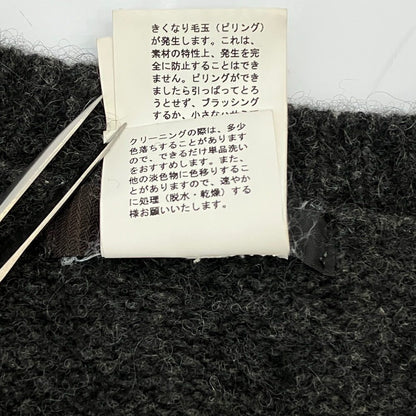 きくなり毛玉（ピリング）
が発生します。これは、
素材の特性上、発生を完
全に防止することはでき
ません。ピリングができ
ましたら引っぱってとろ
うとせず、ブラッシング
するか、小さな
クリーニングの際は、多少
色落ちすることがあります
ので、できるだけ単品洗い
をおすすめします。また、
他の淡色物に色移りするこ
とがありますので、速やか
に処理（脱水・乾燥）する
様お願いいたします。